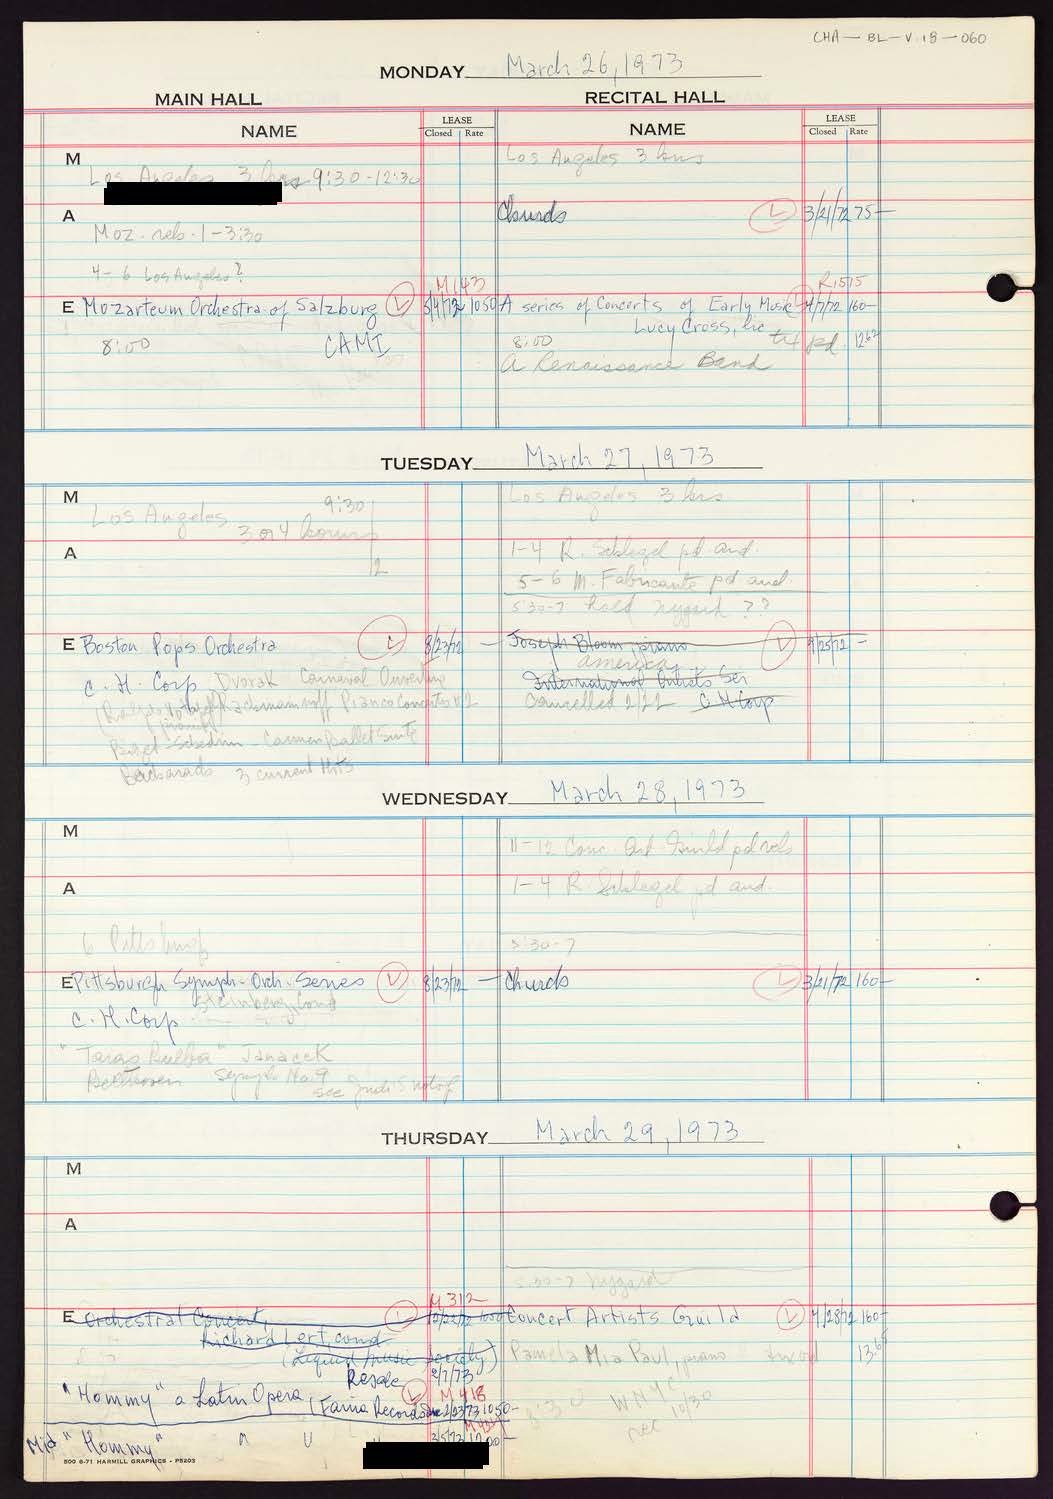 CHA-BL-V.18-060
MONDAY March 26, 1973
MAIN HALL
RECITAL HALL
NAME
LEASE
Closed Rate
NAME
LEASE
Closed Rate
M
Los Angeles 3 hrs 9:30-12:30
Los Angeles 3 hrs
A
Moz. reh. 1-3:30
4-6 Los Angeles?
L 3/21/72 75-
M143
R1515
E Mozarteum Orchestra of Salzburg L 1050
8:00
CAMI
A series of Concerts of Early Music 4/7/72 160-
Lucy Cross, lic
8:00
pd. 1262
A Renaissance Band
TUESDAY March 27, 1973
M
Los Angeles 9:30
3 or 4 hours
12
Los Angeles 3 hrs
A
1-4 R. Schlegel pd aud.
5-6 M. Fabricante pd aud.
5:30-7 hold nygard ??
E Boston Pops Orchestra L 8/23/72 -
C. H. Corp Dvorak Carneval Overture
Rachmaninoff Piano Concerto #2
Carmen Ballet Suite
Bacharach 3 current Hits
Joseph Bloom, piano L 9/25/72 -
america
International Artists Ser
Cancelled 2/22 C H Corp
WEDNESDAY March 28, 1973
M
11-12 Conc. Art Guild pd reh
A
1-4 R. Schlegel pd aud.
6 Pittsburgh
5:30-7
E Pittsburgh Symph. Orch. Series L 8/23/72 -
Steinberg, Cond
C. H. Corp
"Taras Bulba" Janacek
Beethoven Symph No. 9
L 3/21/72 160-
THURSDAY March 29, 1973
M
A
5:00-7 nygard
M 312
E Orchestral Concert, L 1050
Richard Lert, cond
(music society)
Resale 2/7/73
"Hommy" a Latin Opera L M 418
(Fania Records 2/23/73 1050-
Mid "Hommy" " " "
3/5/73 1200-
Concert Artists Guild L 4/28/72 160-
Pamela Mia Paul, piano
8:30 WNYC
rec 10/30
500 6-71 HARMILL GRAPHICS - P5203